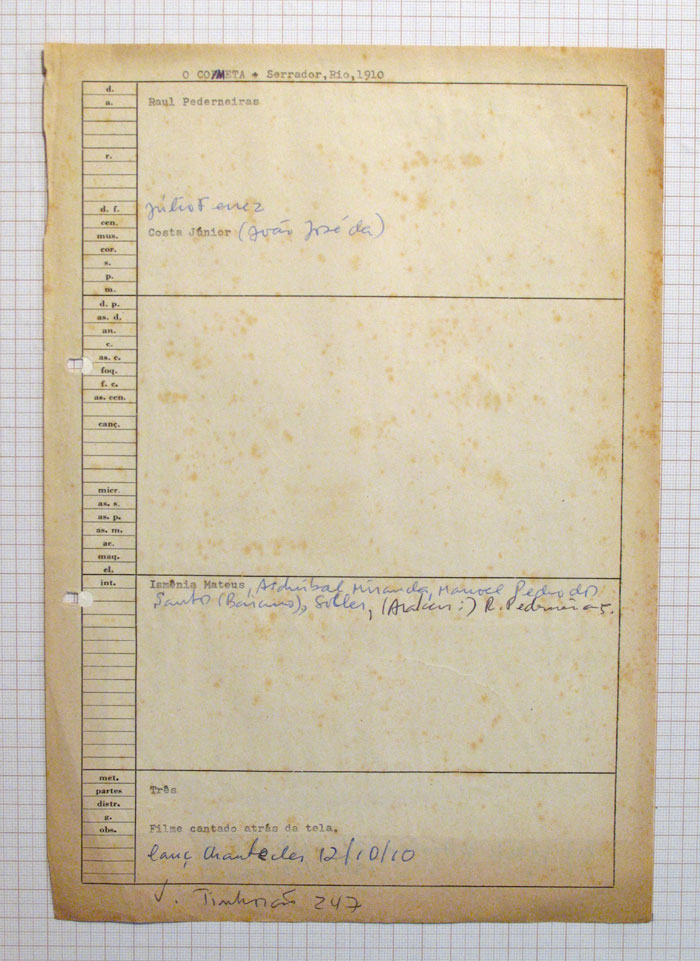 O COMETA * Serrador, Rio, 1910
d.
a. Raul Pederneiras
r.
d. f. Júlio Ferrez
cen.
mus. Costa Júnior (João José da)
cor.
s.
p.
m.
d. p.
as. d.
an.
c.
as. c.
foq.
f. c.
as. cen.
canç.
micr.
as. s.
as. p.
as. m.
ae.
maq.
el.
int. Ismênia Mateus, Asdrubal Miranda, Manoel Pedro dos
Santos (Baiano), Soller, R. Pederneiras.
met.
partes Três
distr.
g.
obs. Filme cantado atrás da tela.
lanç Chantecler 12/10/10
V. Tinhorão 247